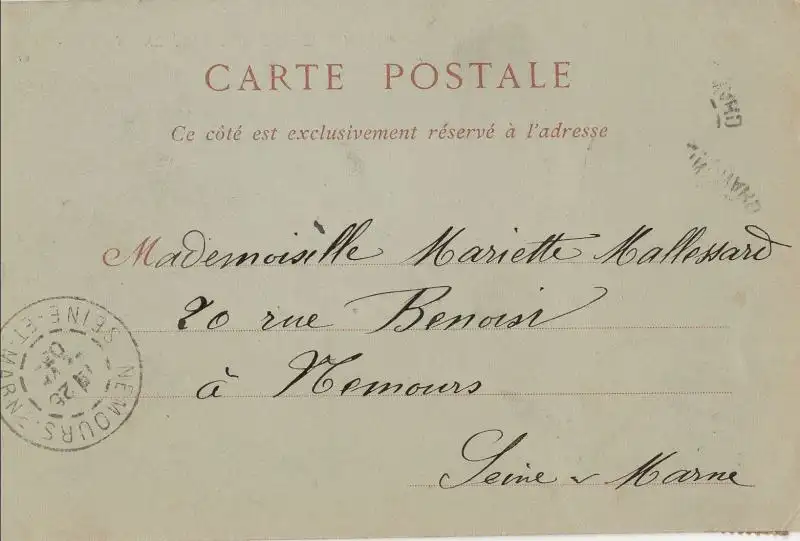 CARTE POSTALE
Ce côté est exclusivement réservé à l'adresse
Mademoiselle Mariette Mallessard
20 rue Benoist
à Nemours
Seine & Marne
NEMOURS SEINE-ET-MARNE